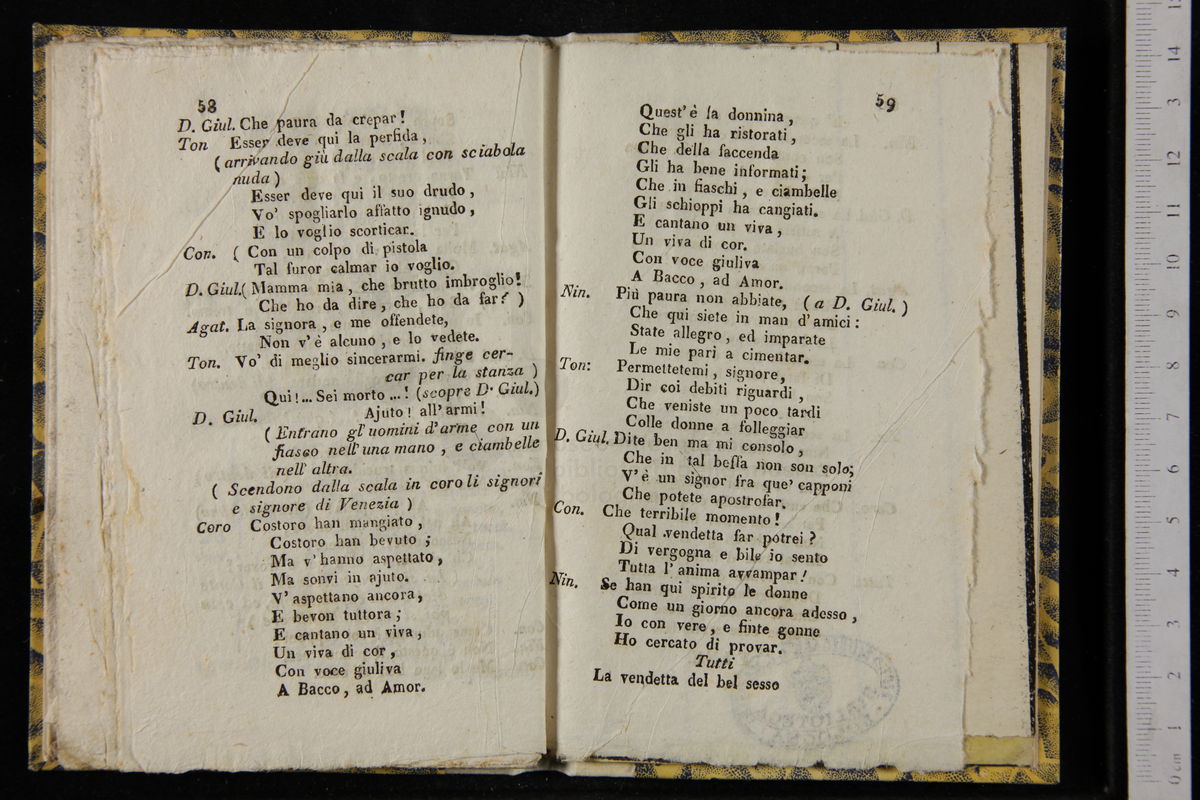 58
D. Giul. Che paura da crepar!
Ton Esser deve qui la perfida,
(arrivando giù dalla scala con sciabola
nuda)
Esser deve qui il suo drudo,
Vo' spogliarlo affatto ignudo,
E lo voglio scorticar.
Con. (Con un colpo di pistola
Tal furor calmar io voglio.
D. Giul.(Mamma mia, che brutto imbroglio!
Che ho da dire, che ho da far? )
Agat. La signora, e me offendete,
Non v'è alcuno, e lo vedete.
Ton. Vo' di meglio sincerarmi. finge cer-
car per la stanza )
Qui!... Sei morto ...! (scopre D. Giul.)
D. Giul. Ajuto! all'armi!
( Entrano gl'uomini d'arme con un
fiasco nell'una mano, e ciambelle
nell' altra.
( Scendono dalla scala in coro li signori
e signore di Venezia )
Coro Costoro han mangiato,
Costoro han bevuto;
Ma v'hanno aspettato,
Ma sonvi in ajuto.
V'aspettano ancora,
E bevon tuttora;
E cantano un viva,
Un viva di cor,
Con voce giuliva
A Bacco, ad Amor.
59
Quest'è la donnina,
Che gli ha ristorati,
Che della faccenda
Gli ha bene informati;
Che in fiaschi, e ciambelle
Gli schioppi ha cangiati.
E cantano un viva,
Un viva di cor.
Con voce giuliva
A Bacco, ad Amor.
Nin. Più paura non abbiate, (a D. Giul.)
Che qui siete in man d'amici:
State allegro, ed imparate
Le mie pari a cimentar.
Ton: Permettetemi, signore,
Dir coi debiti riguardi,
Che veniste un poco tardi
Colle donne a folleggiar
D. Giul. Dite ben ma mi consolo,
Che in tal beffa non son solo;
V'è un signor fra que' capponi
Che potete apostrofar.
Con. Che terribile momento!
Qual vendetta far potrei?
Di vergogna e bile io sento
Tutta l'anima avvampar!
Nin. Se han qui spirito le donne
Come un giorno ancora adesso,
Io con vere, e finte gonne
Ho cercato di provar.
Tutti
La vendetta del bel sesso